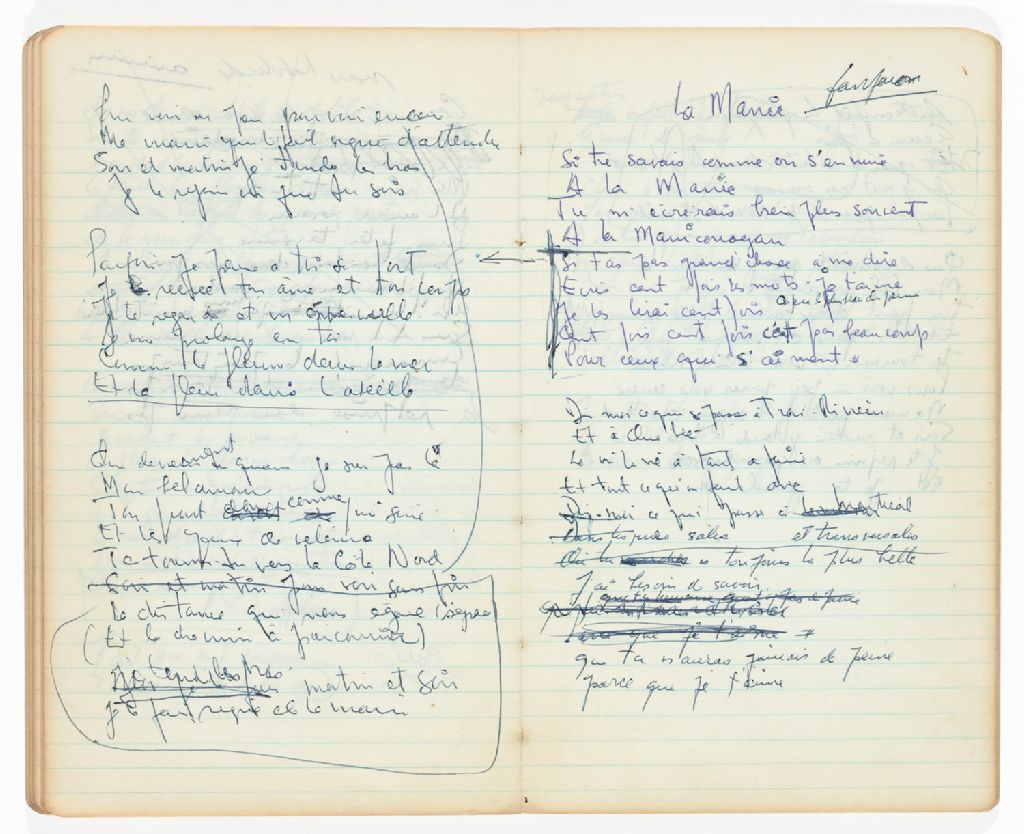 main qui fait signe d'attendre
Soir et matin je tends les bras
Je te rejoins où que tu sois
Parfois je pense à toi si fort
Je recrée ton âme et ton corps
Je te regarde et m'émerveille
Je me prolonge en toi
Comme le fleuve dans la mer
Et la fleur dans l'abeille
Que deviennent quand je suis pas là
Mon bel amour
Ton front comme
Et tes yeux de velours
Te tournes-tu vers la Côte Nord
Soir et matin
La distance qui nous sépare
(Et le chemin à parcourir)
matin et soir
je te fais signe de la main
La Manic
Si tu savais comme on s'ennuie
A la Manic
Tu m'écrirais bien plus souvent
A la Manicouagan
Si t'as pas grand chose à me dire
Ecris cent fois les mots je t'aime
Je les lirai cent fois
Cent fois cent fois c'est pas beaucoup
Pour ceux qui s'aiment
Dis moi ce qui s'passe à Trois-Rivières
Et à Québec
Là où la vie a tant à faire
Et tout ce qu'on fait avec
Dis-moi ce qui s'passe à Montréal
Dans les rues sales et transversales
Où tu es toujours la plus belle
J'ai besoin de savoir
parce que je t'aime
que tu n'auras jamais de peine
parce que je t'aime